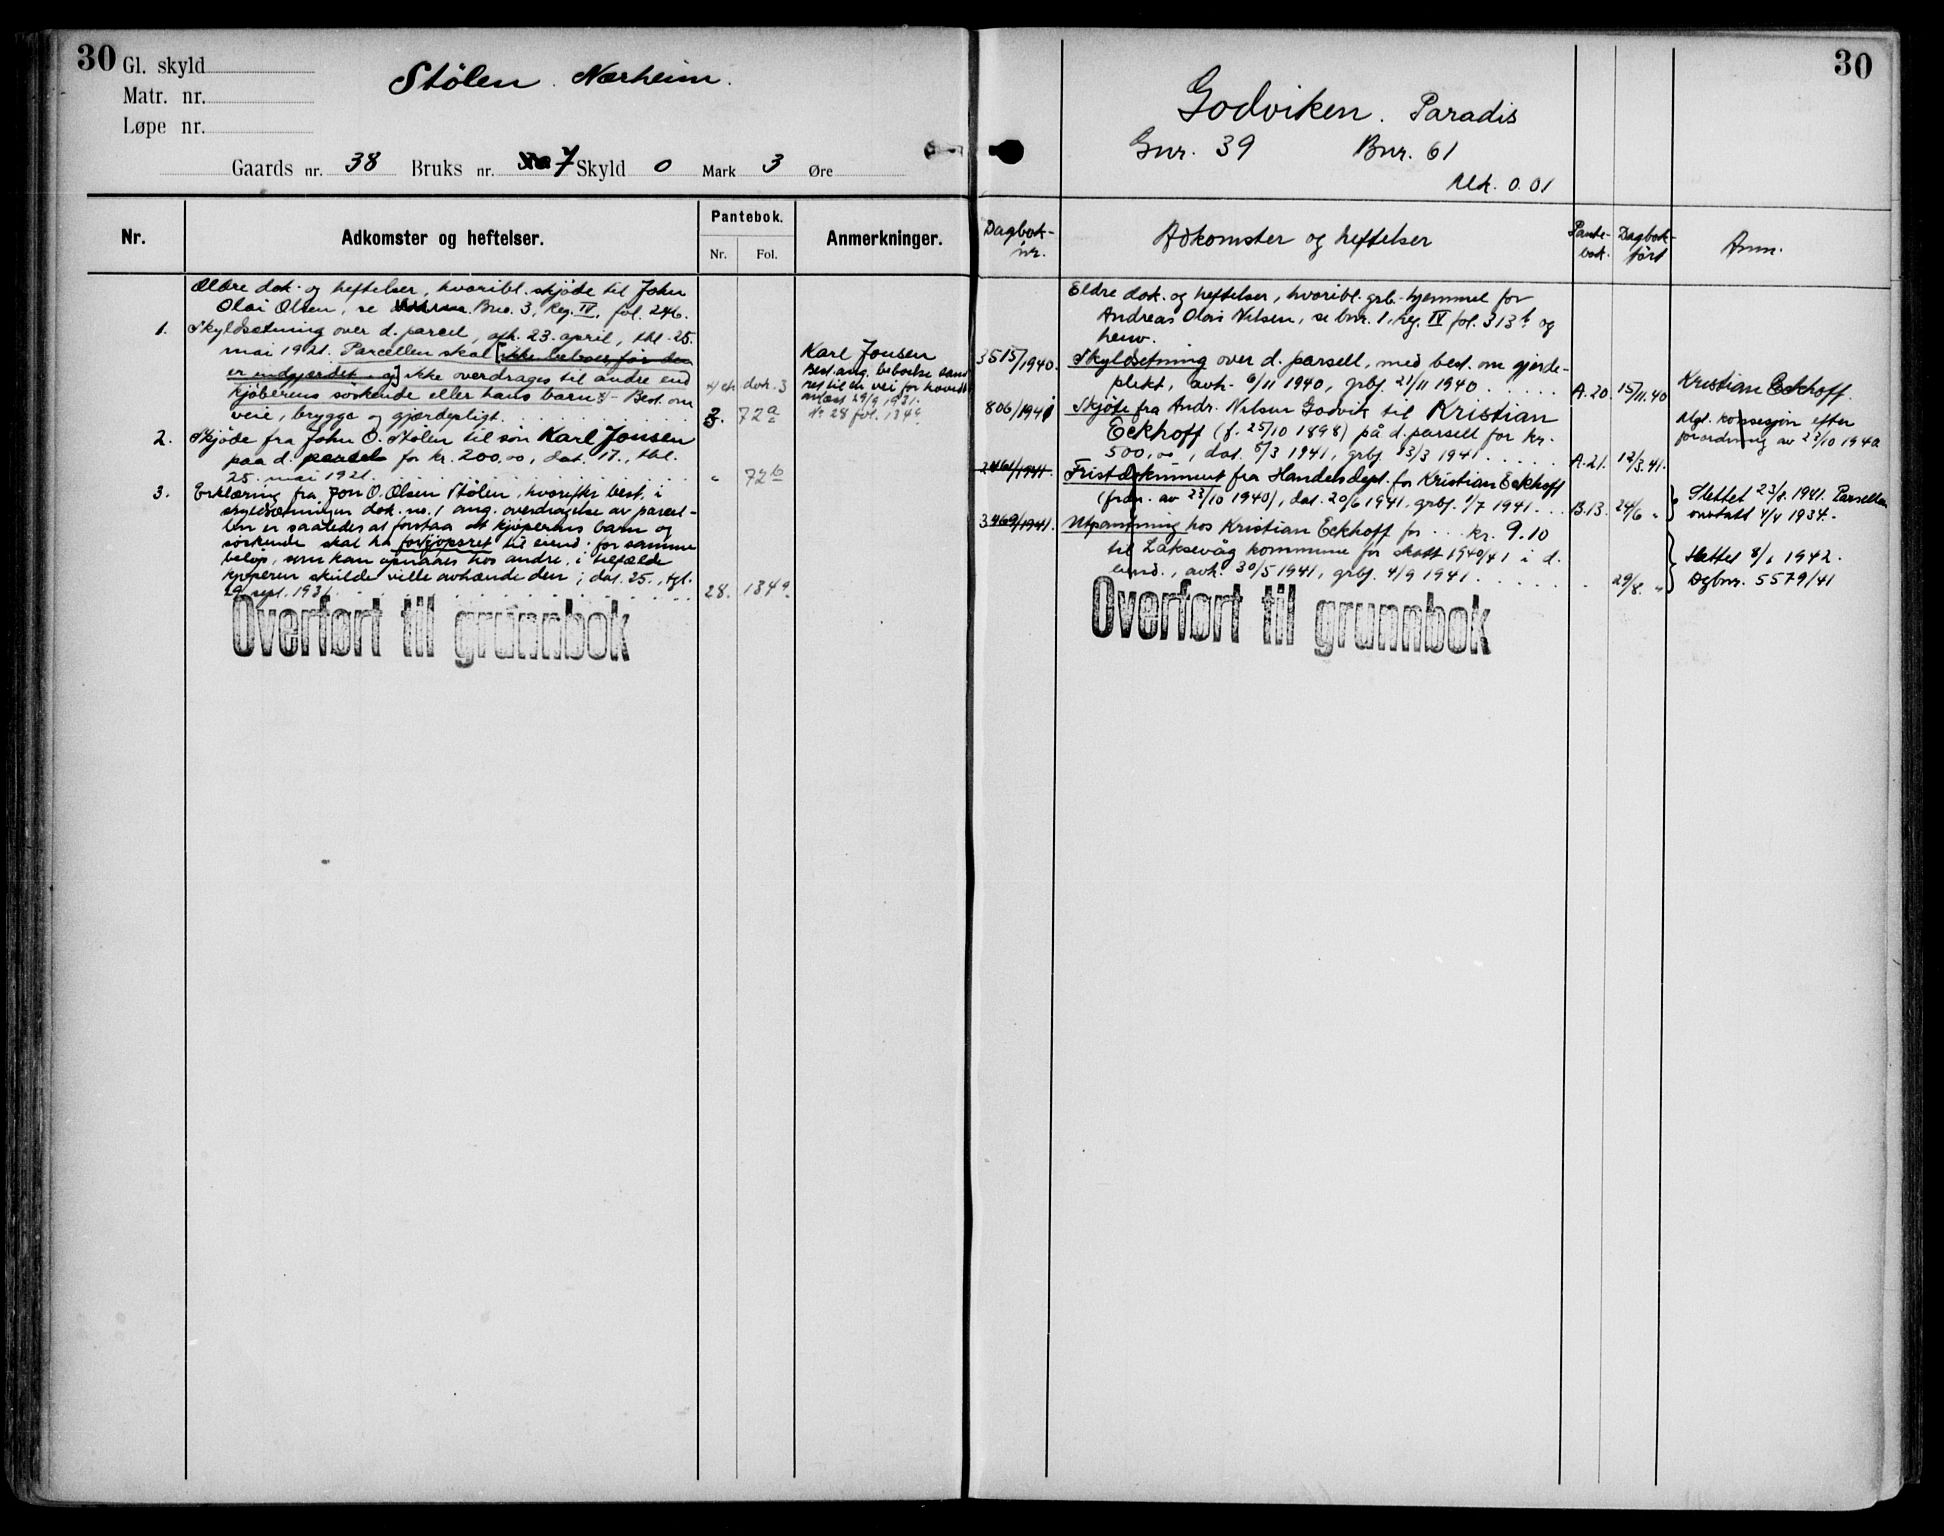 30
Gl. skyld
Matr. nr.
Løpe nr.
Stølen. Nærheim.
Gaards nr. 38 Bruks nr. 7 Skyld 0 Mark 3 Øre
Nr.
Adkomster og heftelser.
Pantebok.
Nr. Fol.
Anmerkninger.
Ældre dok. og heftelser, hvoribl. skjøde til John
Olai Olsen, se Bno. 3, Reg. IV, fol. 246.
1. Skyldsetning over d. parcel, afh. 23. april, thl. 25.
mai 1921. Parcellen skal [ikke beboes før den
er indgjærdet og] ikke overdrages til andre end
kjøberens søskende eller hans barn. Best. om
veie, brygge og gjærdepligt. 3. 72a
dok. 3
Karl Jonsen
Best. ang. beboelse samt
ret til en vei for hoved-
29/9 1931.
N. 28 fol. 134a
2. Skjøde fra John O. Stølen til søn Karl Jonsen
paa d. parsel for kr. 200,00, dat. 17., thl.
25. mai 1921. " 72b
3. Erklæring fra Jon O. Olsen Stølen, hvorefter best. i
skyldsætningen dok. no. 1 ang. overdragelse av parcel-
len er saaledes at forstaa at kjøperens barn og
søskende skal ha forkjøpsret til eiend. for samme
beløp, som kan opnaaes hos andre, i tilfælde
kjøperen skulde ville avhænde den; dat. 25., tgl.
29. sept. 1931. 28. 134a.
Overført til grunnbok
30
Godviken. Paradis
Gnr. 39 Bnr. 61
0.01
Dagbok-
nr.
Adkomster og heftelser
Pante-
bok.
Dagbok-
ført
Anm.
Eldre dok. og heftelser, hvoribl. grb.-hjemmel for
Andreas Olais Nilsen, se bnr. 1, reg. IV fol. 313b og
henv.
3515/1940. Skyldsetning over d. parsell, med best. om gjerde-
plikt, avh. 6/11 1940, grbf. 21/11 1940 A. 20. 15/11.40
Kristian Eckhoff.
806/1941 Skjøte fra Andr. Nilsen Godvik til Kristian
Eckhoff (f. 25/10 1898) på d. parsell for kr.
500,00, dat. 5/3 1941, grbf. 13/3 1941. A. 21. 12/3.41.
konsesjon efter
forordning av 23/10 1940
2461/1941. Fristdokument fra Handelsdept. for Kristian Eckhoff
(frdn. av 23/10 1940), dat. 20/6 1941, grbf. 1/7 1941. B.13. 24/6 "
Slettet 23/8. 1941. Parsellen
4/4 1934.
3469/1941. Utpantning hos Kristian Eckhoff for kr. 9.10
til Laksevåg kommune for skatt 1940/41 i d.
eiend., avh. 30/5 1941, grbf. 4/9 1941. " 29/8. "
Slettet 8/1 1942.
Dgbnr. 5579/41
Overført til grunnbok